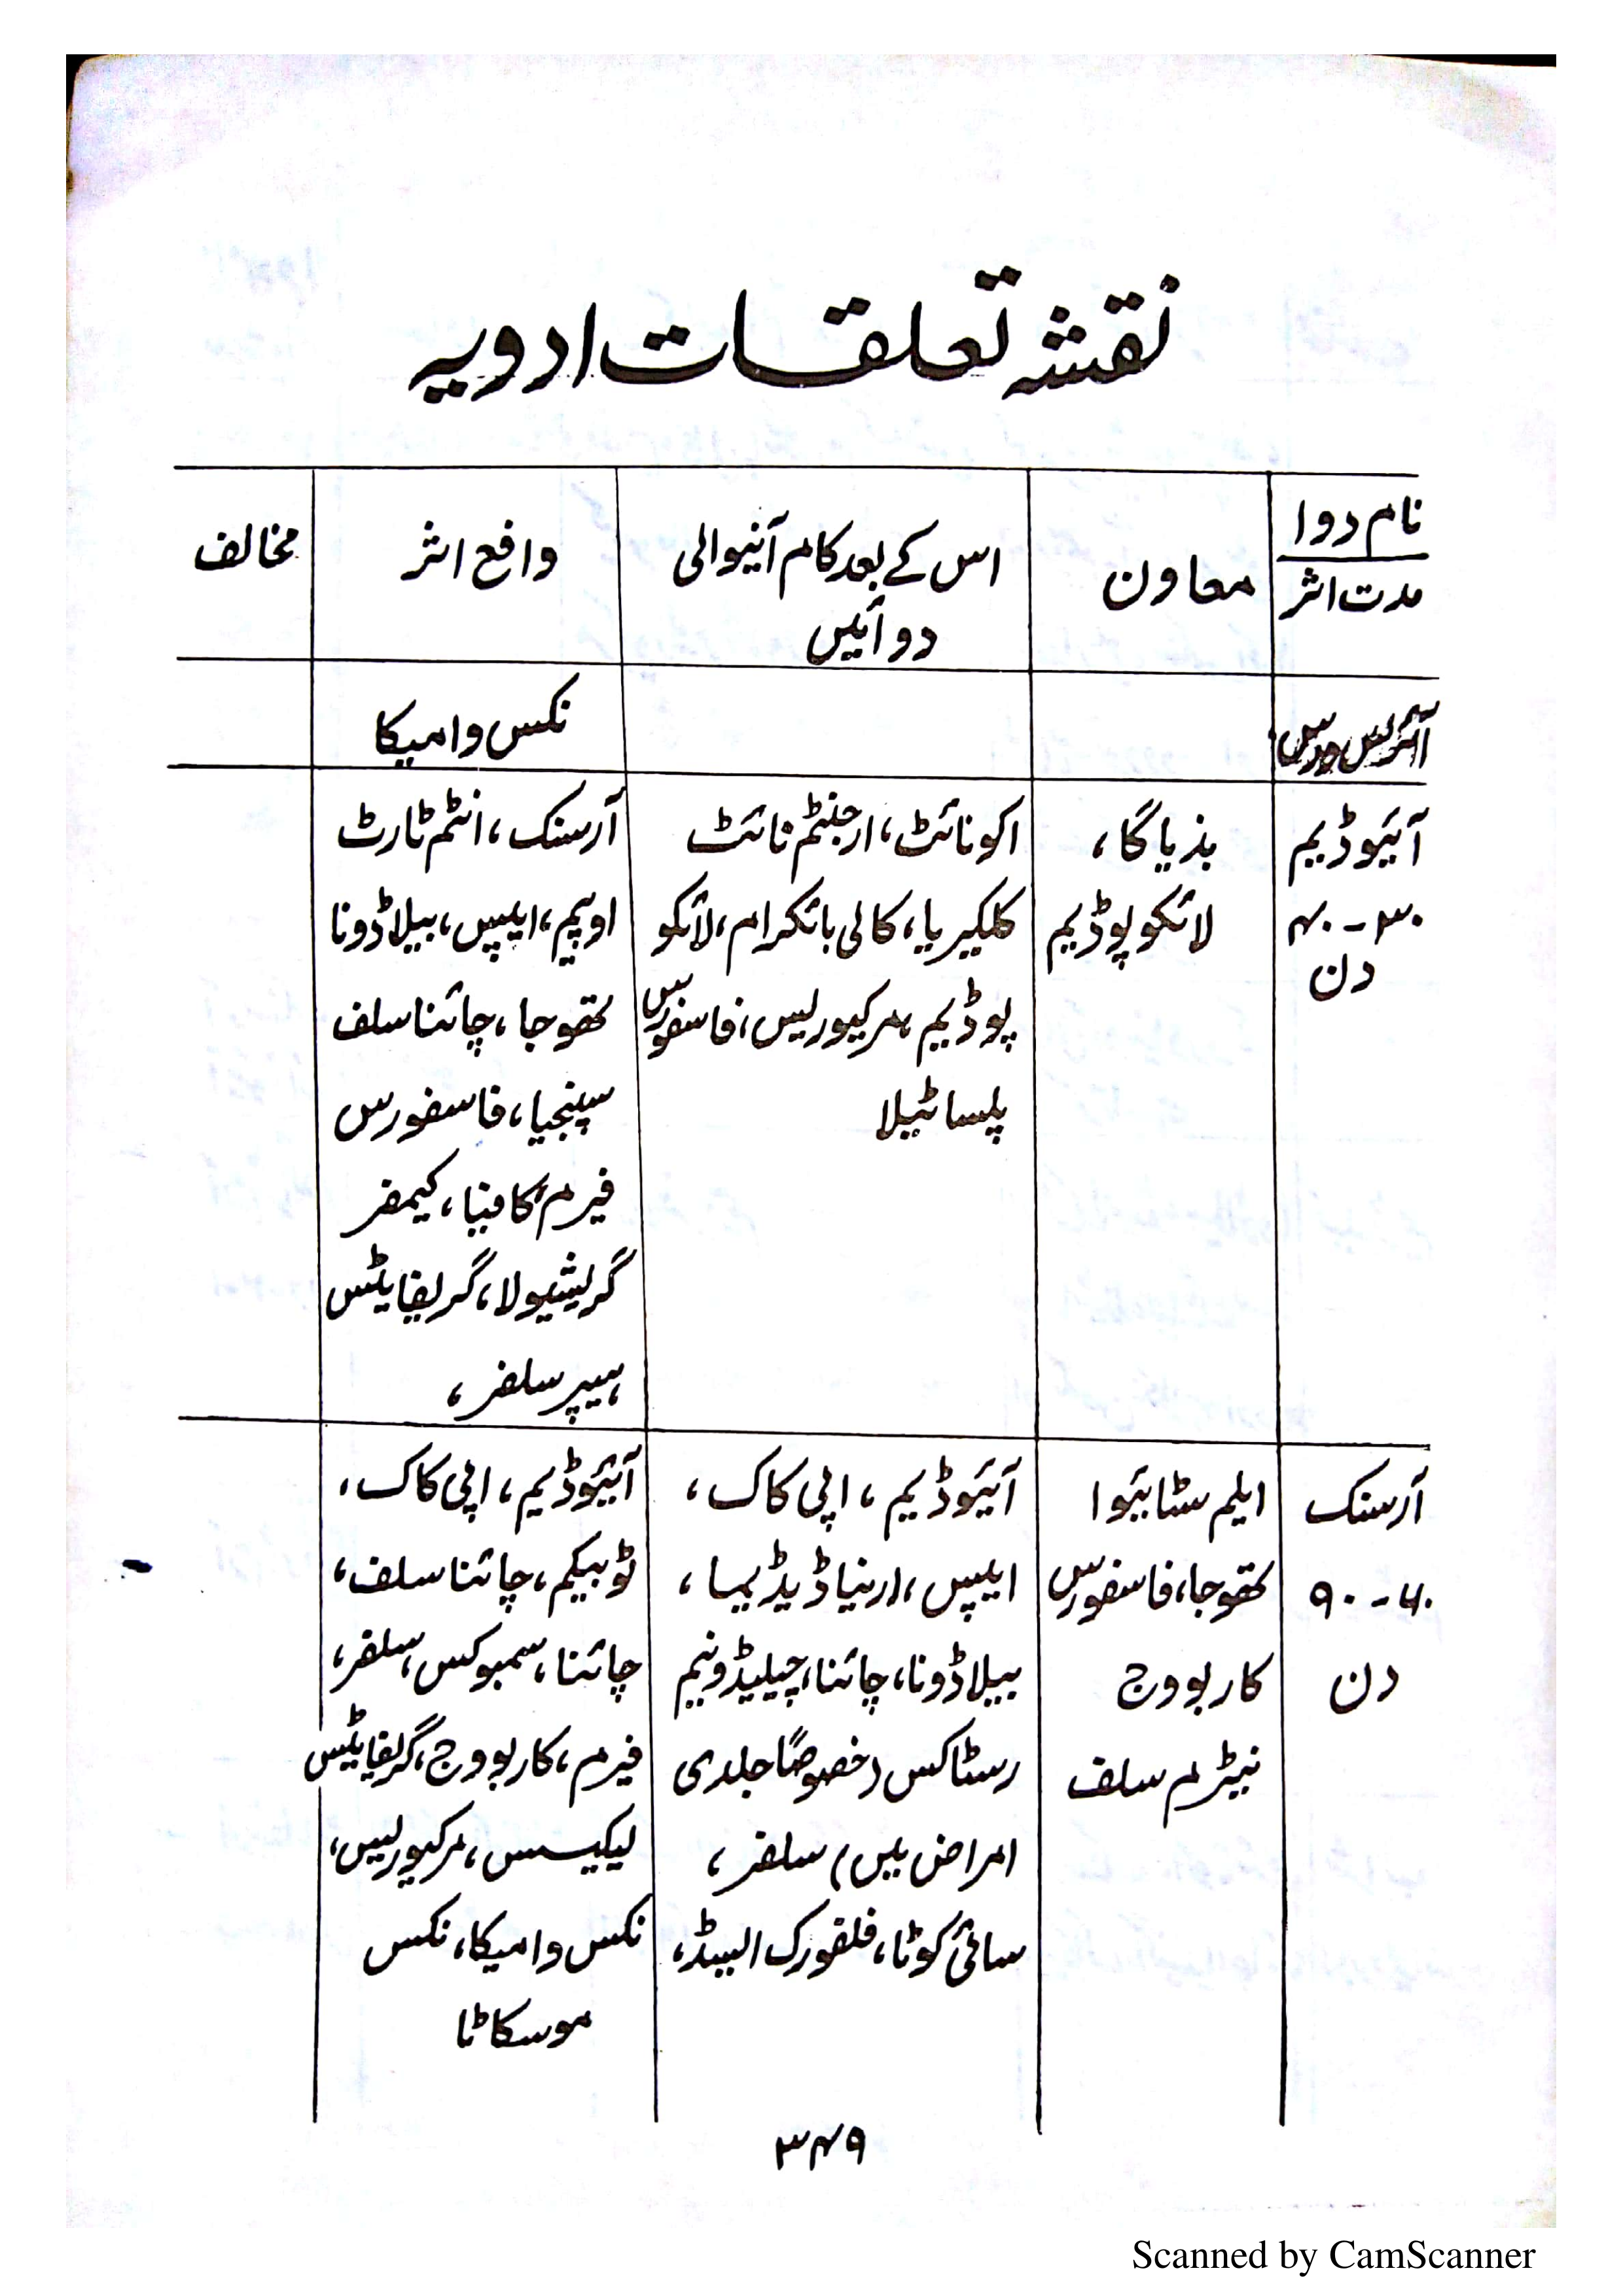 نقشہ تعلقات ادویہ
نام دوا
مدت اثر
معاون
اس کے بعد کام آنیوالی
دوائیں
دافع اثر
مخالف
آئرس ورس
نکس وامیکا
آئیوڈیم
۳۰ - ۴۰
دن
بذیاگا،
لائکوپوڈیم
اکونائٹ، ارجنٹم نائٹ
کلکیریا، کالی بائکرام، لائکو
پوڈیم، مرکیورلیس، فاسفورس
پلساٹیلا
آرسنک، انٹم ٹارٹ
اوپیم، ایپس، بیلاڈونا
تھوجا، چائنا سلف
سپنجیا، فاسفورس
فیرم، کافیا، کیمفر
گریشیولا، گریفائٹس
ہیپر سلفر،
آرسنک
۶۰ - ۹۰
دن
ایلم سٹائیوا
تھوجا، فاسفورس
کاربووج
نیٹرم سلف
آئیوڈیم، اپی کاک،
ایپس، ارنیا ڈیڈیما،
بیلاڈونا، چائنا، چیلیڈونیم
رسٹاکس (خصوصاً جلدی
امراض میں) سلفر،
سائی کوٹا، فلفورک ایسڈ،
آئیوڈیم، اپی کاک،
ٹوبیکم، چائنا سلف،
چائنا، سمبوکس، سلفر،
فیرم، کاربووج، گریفائٹس
لیکیسس، مرکیورلیس،
نکس وامیکا، نکس
موسکاٹا
۳۴۹
Scanned by CamScanner